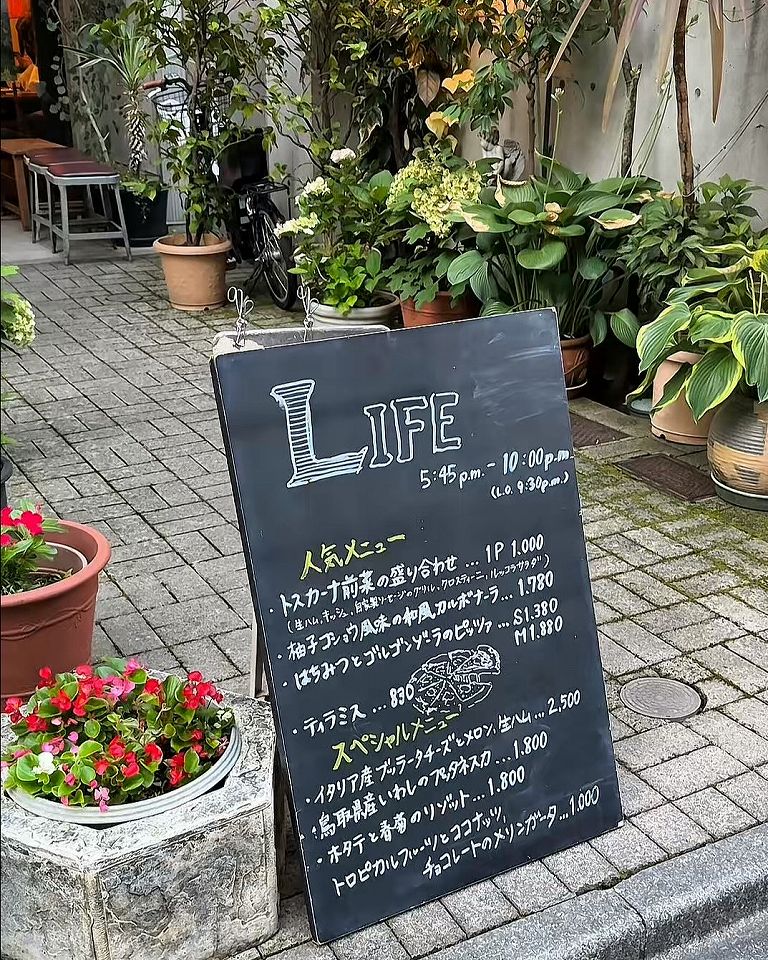 LIFE
5:45p.m.- 10:00p.m.
(L.O. 9:30p.m.)
人気メニュー
・トスカーナ前菜の盛り合わせ … 1P 1.000
(生ハム、キッシュ、自家製ソーセージのグリル、クロスティーニ、ルッコラサラダ)
・柚子コショウ風味の和風カルボナーラ… 1.780
・はちみつとゴルゴンゾーラのピッツァ … S1.380
M1.880
・ティラミス … 830
スペシャルメニュー
・イタリア産ブッラータチーズとメロン、生ハム… 2,500
・鳥取県産いわしのプッタネスカ … 1.800
・ホタテと春菊のリゾット… 1.800
トロピカルフルーツとココナッツ、
チョコレートのメリンガータ … 1.000